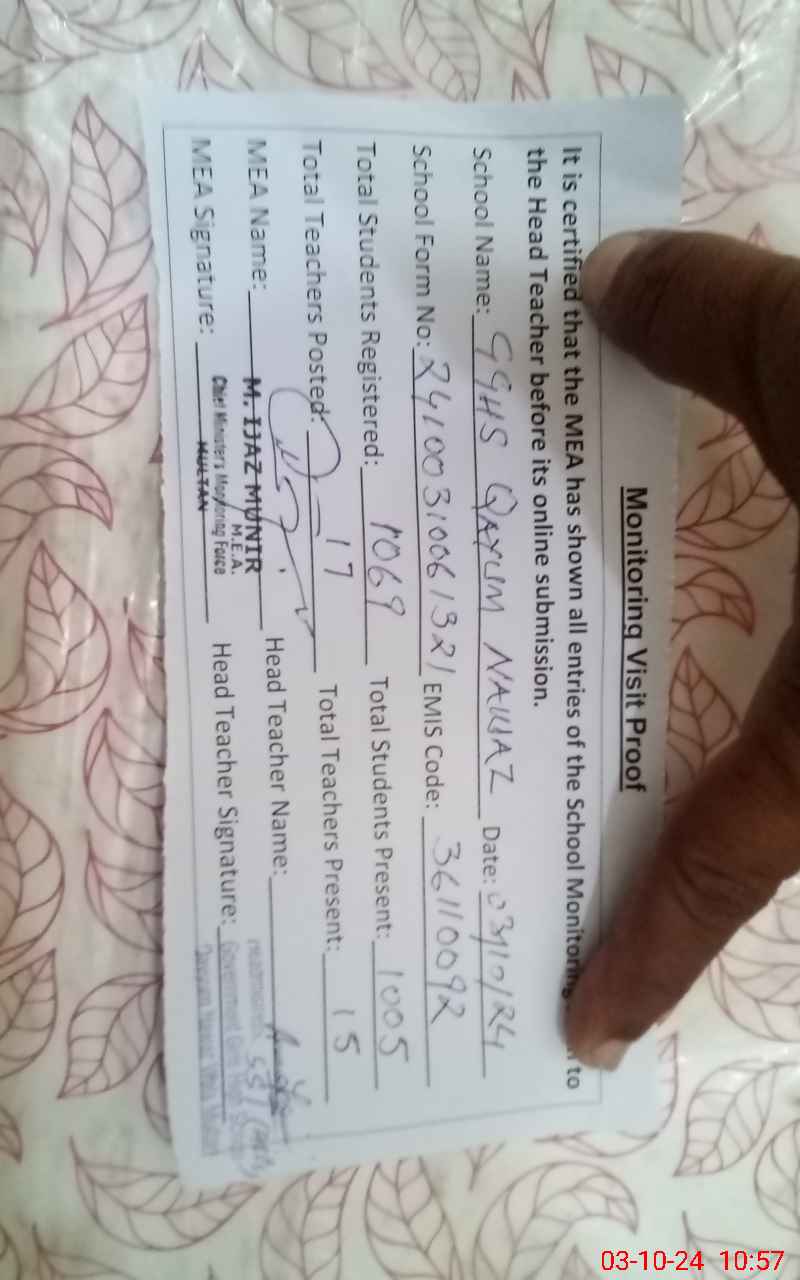 Monitoring Visit Proof
It is certified that the MEA has shown all entries of the School Monitoring to
the Head Teacher before its online submission.
School Name: GGHS QAYUM NAWAZ Date: 03/10/24
School Form No: 24100310061321 EMIS Code: 36110092
Total Students Registered: 1069 Total Students Present: 1005
Total Teachers Posted: 17 Total Teachers Present: 15
MEA Name: M. IJAZ MUNIR Head Teacher Name:
M.E.A.
Chief Ministers Monitoring Force
MULTAN
MEA Signature: Head Teacher Signature:
Government Girls High
03-10-24 10:57